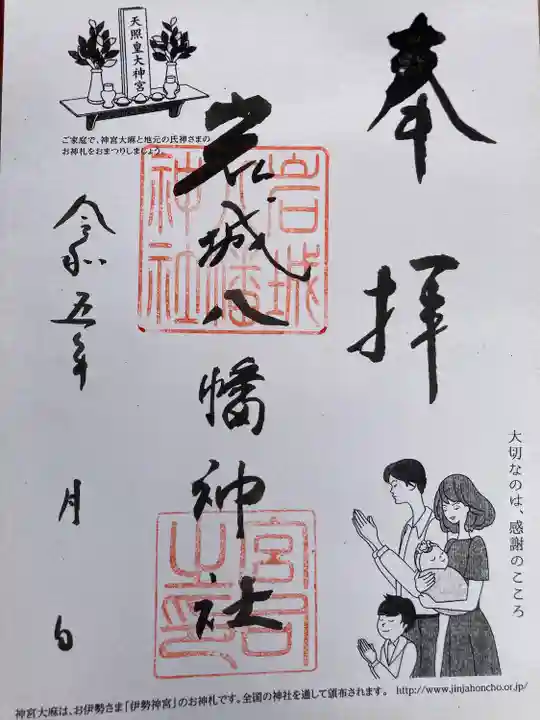 奉拝
天照皇大神宮
ご家庭で、神宮大麻と地元の氏神さまの
お神札をおまつりしましょう
岩城八幡神社
岩城
八幡
神社
宮司
之印
令和五年 月 日
大切なのは、感謝のこころ
神宮大麻は、お伊勢さま「伊勢神宮」のお神札です。全国の神社を通して頒布されます。 http://www.jinjahoncho.or.jp/